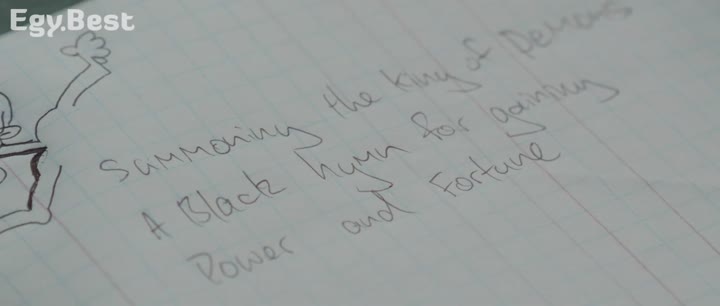 Egy.Best
Summoning the King of Demons
A Black hymn for gaining
Power and Fortune